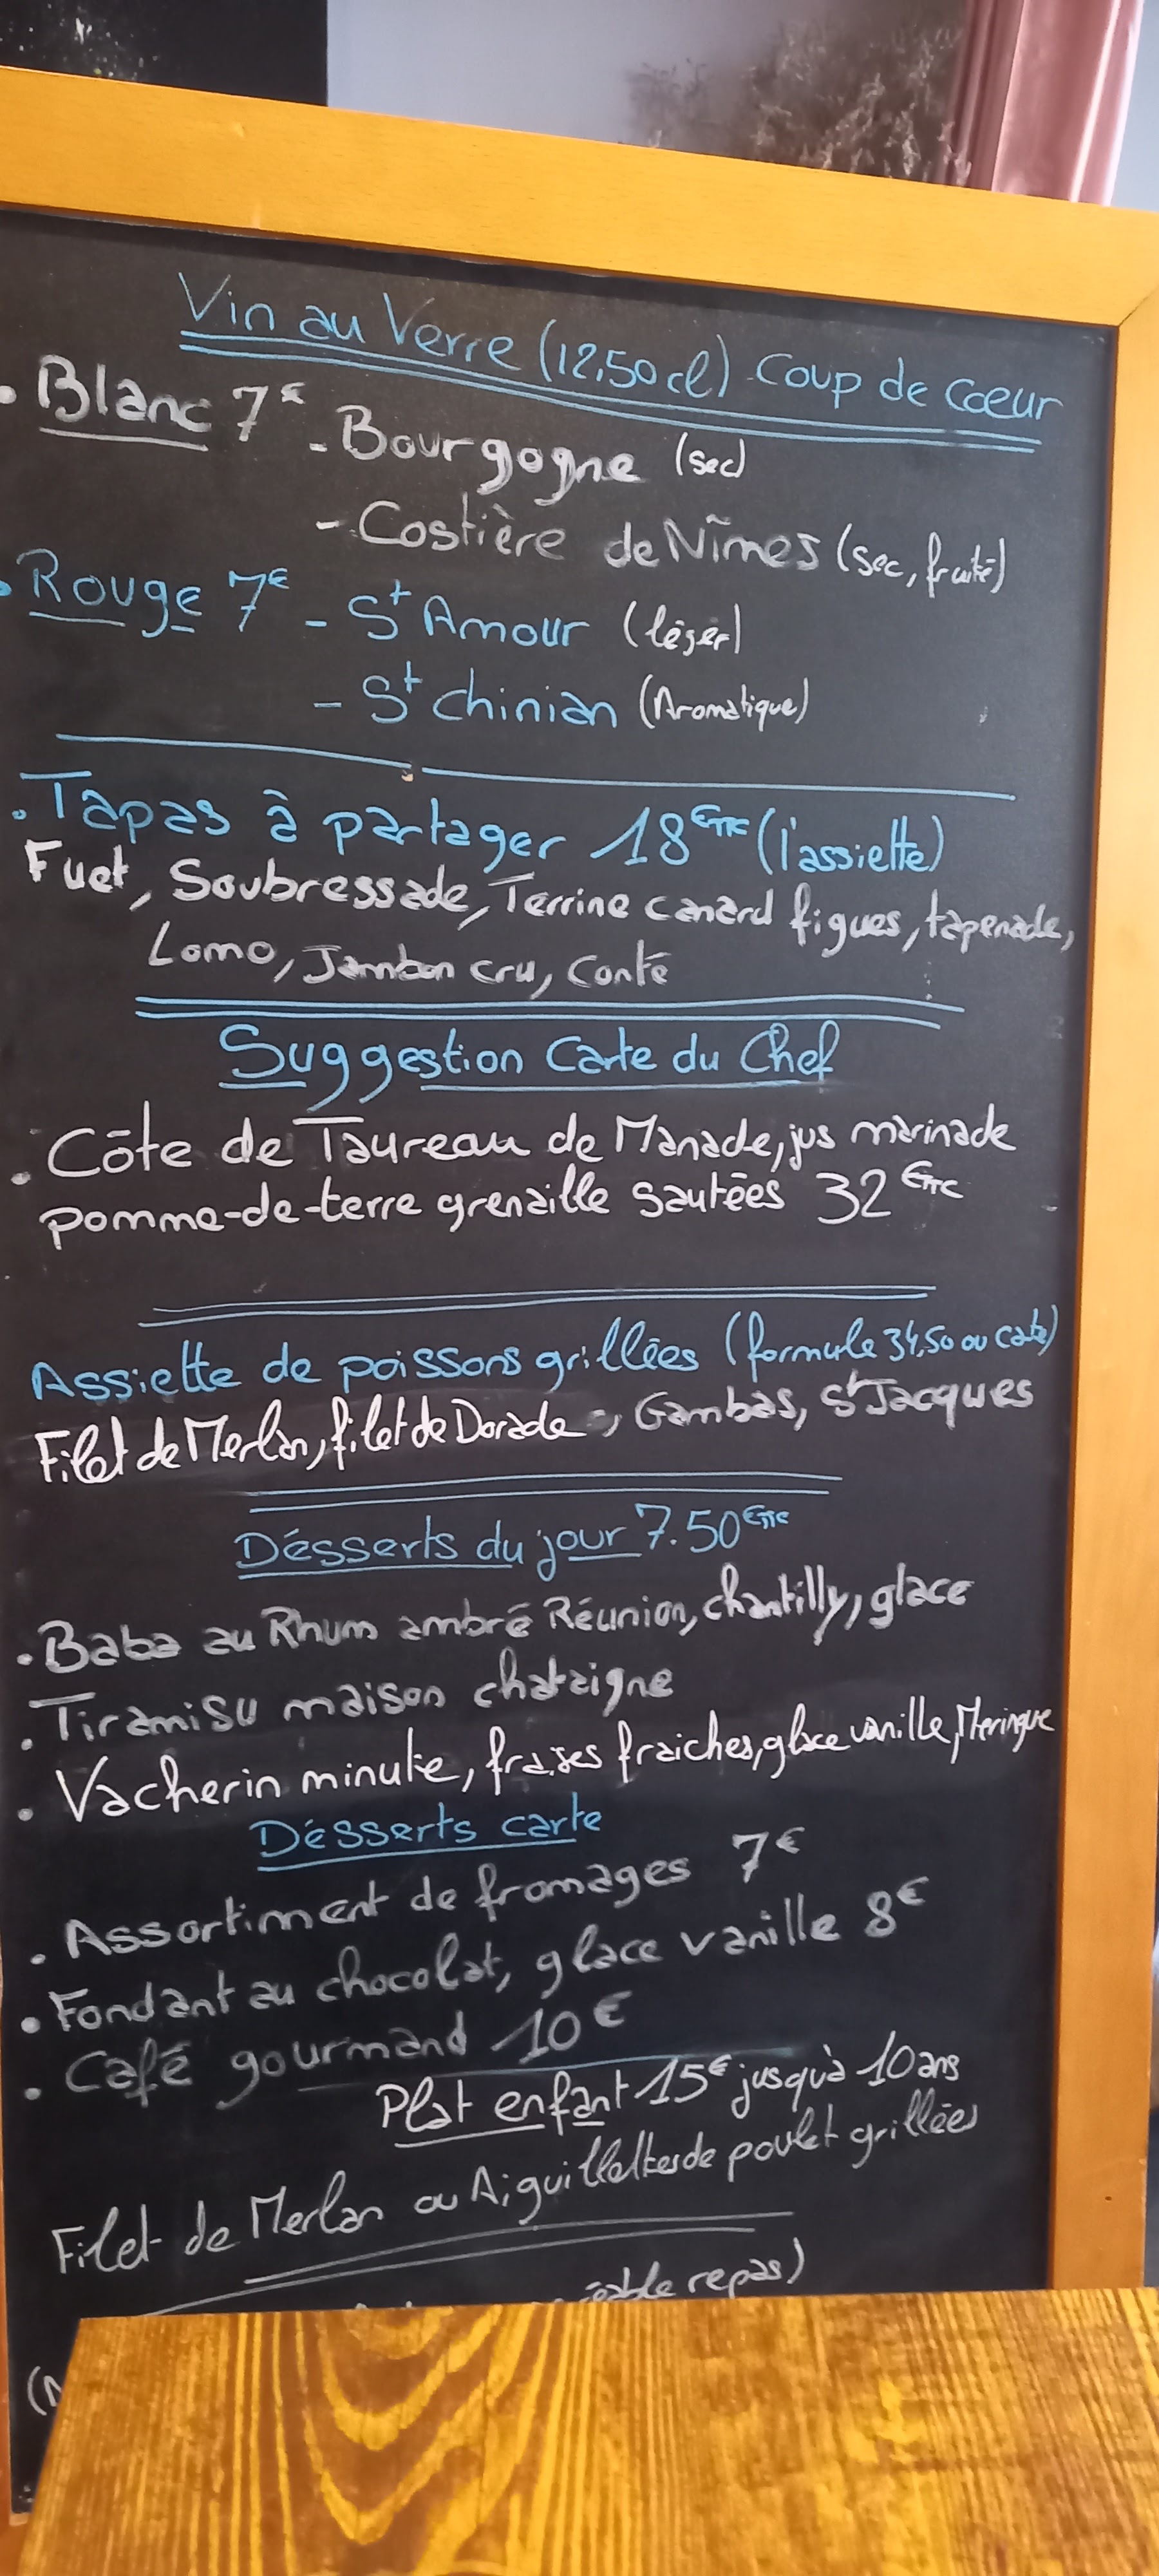 Vin au Verre (12,50cl) Coup de Coeur
• Blanc 7€ - Bourgogne (sec)
- Costière de Nîmes (sec, fruité)
• Rouge 7€ - St Amour (léger)
- St Chinian (Aromatique)
• Tapas à partager 18€TTC (l'assiette)
Fuet, Soubressade, Terrine canard figues, tapenade,
Lomo, Jambon cru, Conté
Suggestion Carte du Chef
• Côte de Taureau de Manade, jus marinade
pomme-de-terre grenaille sautées 32€TTC
Assiette de poissons grillées (formule 34,50 ou carte)
Filet de Merlan, filet de Dorade, Gambas, St Jacques
Désserts du jour 7.50€TTC
• Baba au Rhum ambré Réunion, chantilly, glace
• Tiramisu maison chataigne
• Vacherin minute, fraises fraiches, glace vanille, Meringue
Désserts carte
• Assortiment de fromages 7€
• Fondant au chocolat, glace vanille 8€
• Café gourmand 10€
Plat enfant 15€ jusqu'à 10 ans
Filet de Merlan ou Aiguillettes de poulet grillées
repas)